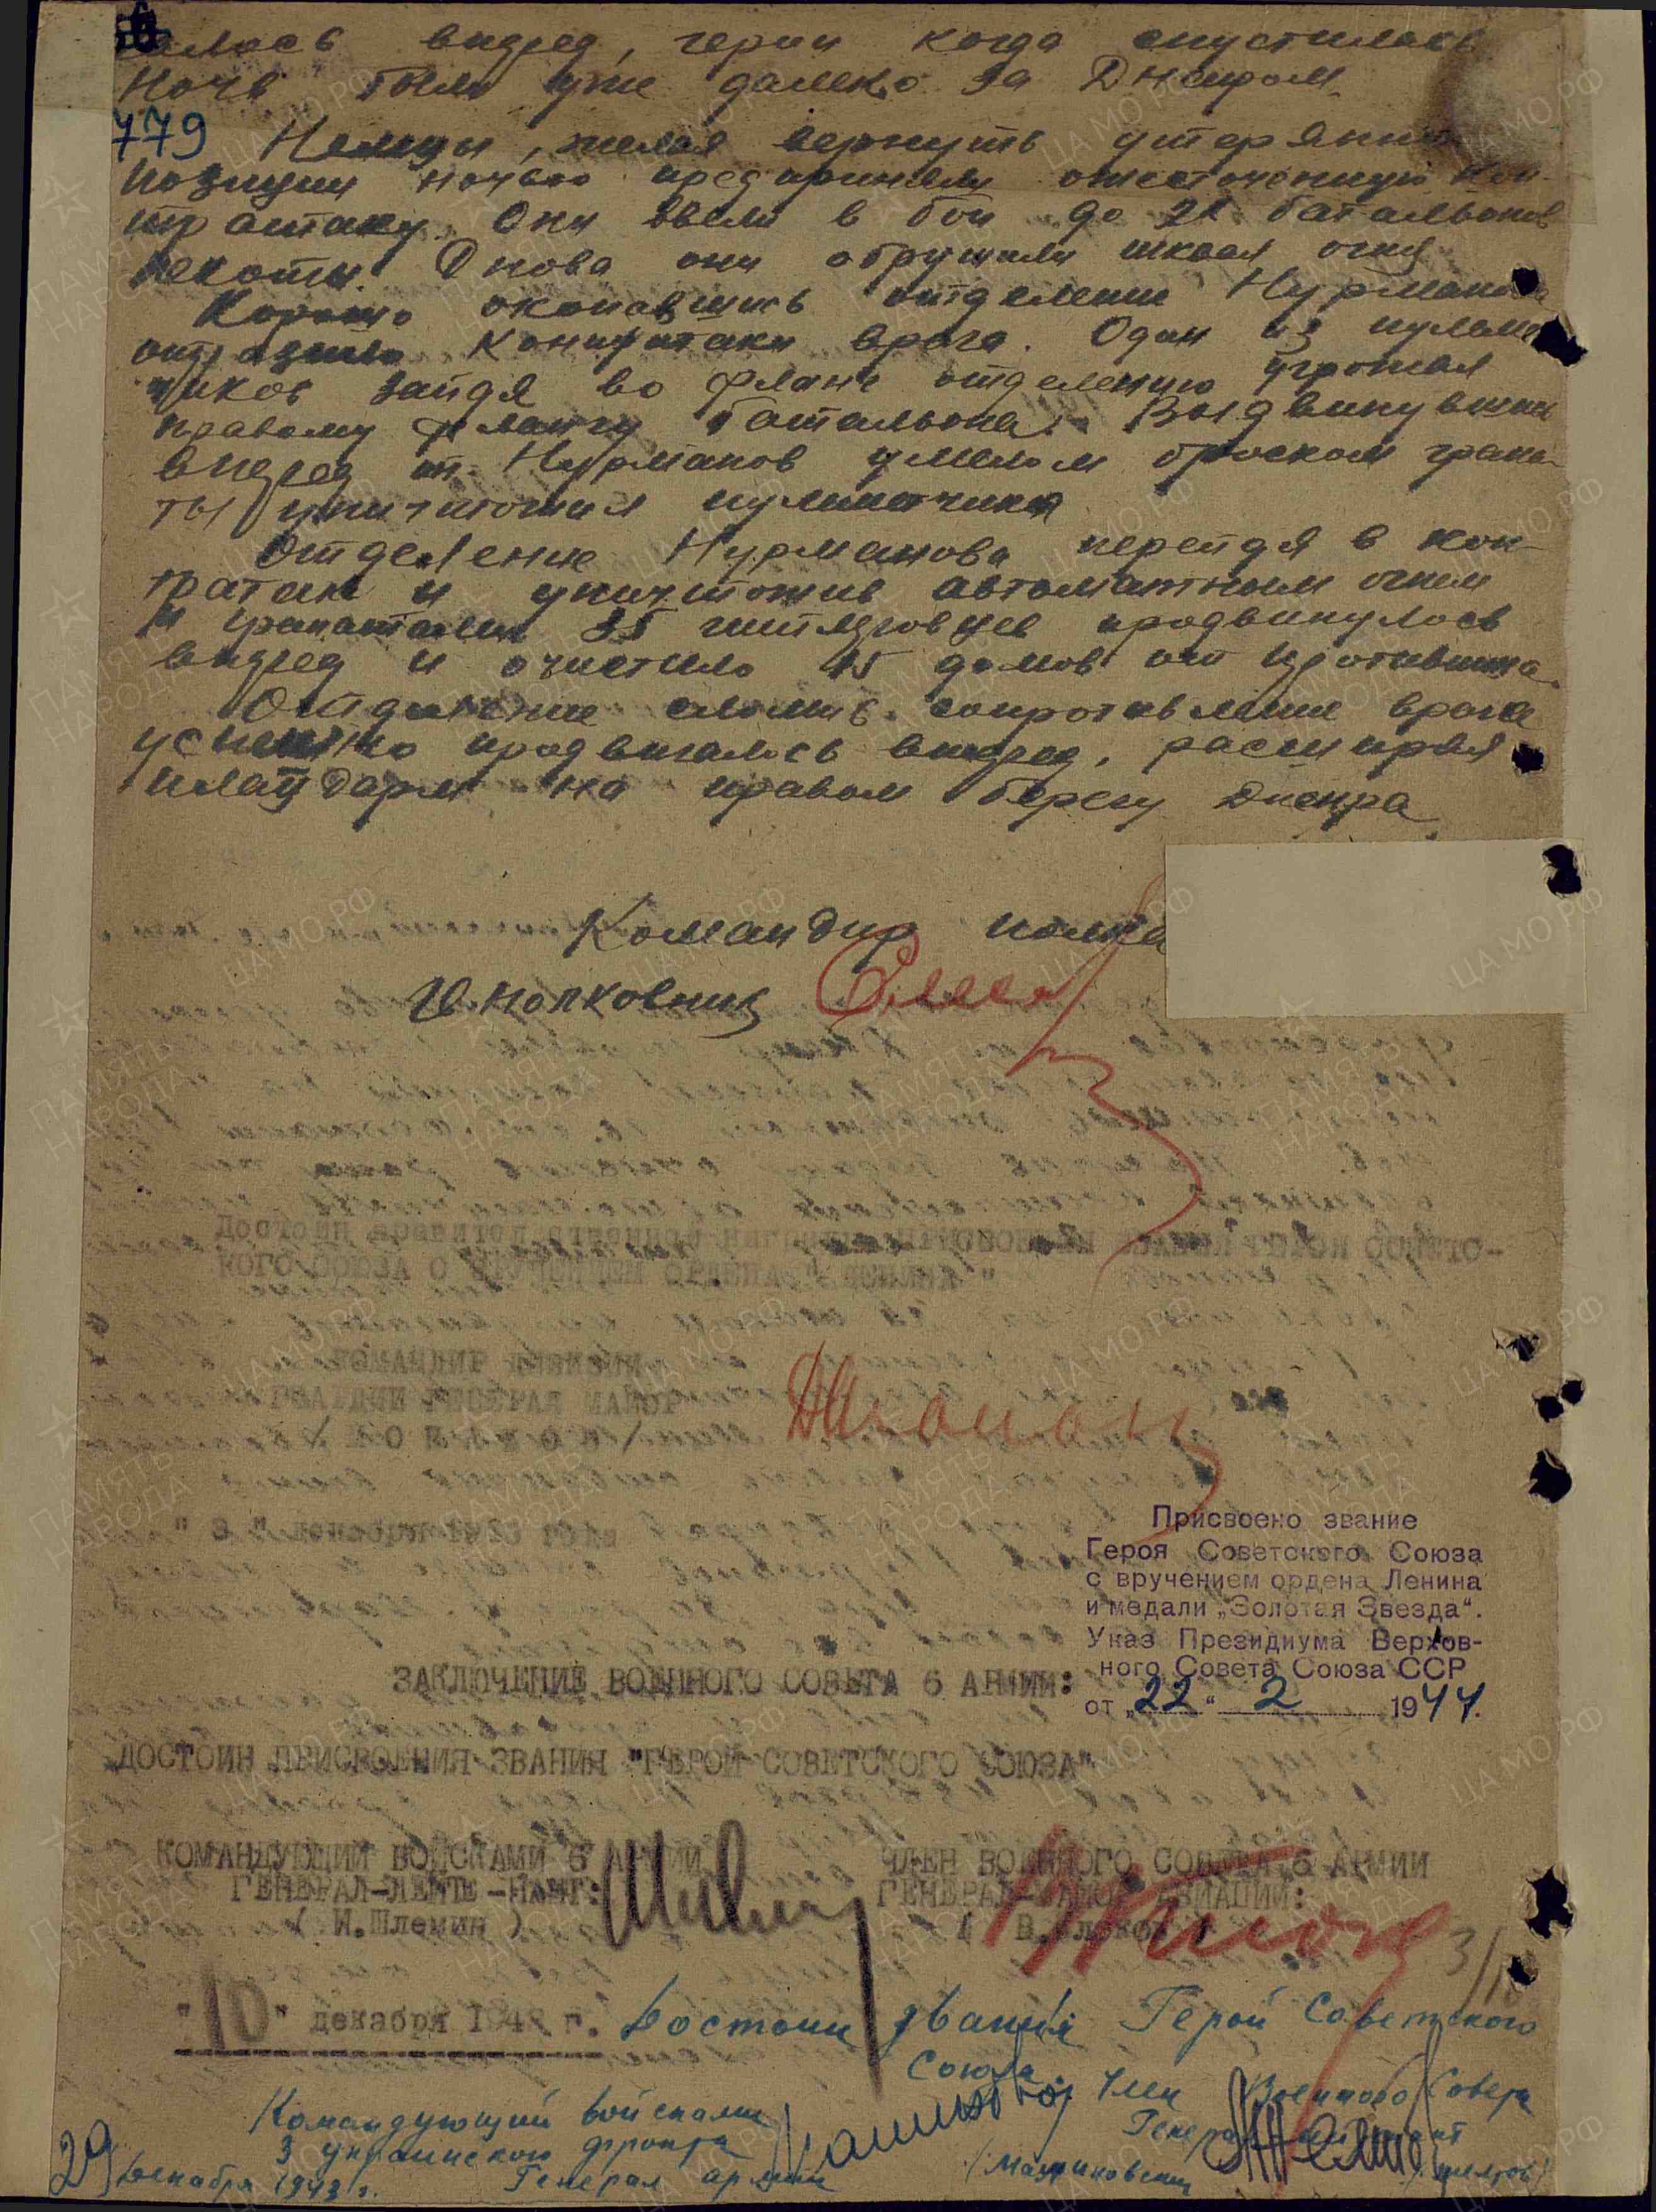 алось вперед, герои когда спустилась
ночь были уже далеко за Днепром.
779
Немцы, желая вернуть утерянные
позиции ночью предприняли ожесточенную кон-
тратаку. Они ввели в бой до 2х батальонов
пехоты. Снова они обрушили шквал огня
Хорошо окопавшись отделение Нурманова
отразило контратаки врага. Один из пулемет
чиков зайдя во фланг отделению угрожал
правому флангу батальона. Выдвинувшись
вперед т. Нурманов умелым броском грана-
ты уничтожил пулеметчика
Отделение Нурманова перейдя в кон-
тратаку и уничтожив автоматным огнем
и гранатами 35 гитлеровцев продвинулось
вперед и очистило 15 домов от противника.
Отделение сломив сопротивление врага
успешно продвигалось вперед, расширяя
плацдарм на правом берегу Днепра.
Командир полка
Гв. полковник
Достоин правительственной награды присвоения звания Героя Советс-
кого Союза с вручением ордена "Ленина"
КОМАНДИР ДИВИЗИИ
ГВАРДИИ ГЕНЕРАЛ МАЙОР
декабря 1943 года
Присвоено звание
Героя Советского Союза
с вручением ордена Ленина
и медали „Золотая Звезда“.
Указ Президиума Верхов-
ного Совета Союза ССР
от „22“ 2 1944.
ЗАКЛЮЧЕНИЕ ВОЕННОГО СОВЕТА 6 АРМИИ:
ДОСТОИН ПРИСВОЕНИЯ ЗВАНИЯ "ГЕРОЙ СОВЕТСКОГО СОЮЗА"
КОМАНДУЮЩИЙ ВОЙСКАМИ 6 АРМИИ
ГЕНЕРАЛ-ЛЕЙТЕ-НАНТ:
( И.Шлемин )
ЧЛЕН ВОЕННОГО СОВЕТА 6 АРМИИ
ГЕНЕРАЛ-МАЙОР АВИАЦИИ:
( В.Клоков )
"10" декабря 1943 г.
Достоин звания Герой Советского
Союза.
Командующий войсками
3 украинского фронта
Генерал армии
(Малиновский)
Член Военного Совета
Генерал лейтенант
(Желтов)
29 декабря 1943 г.
ПАМЯТЬ НАРОДА
ЦА МО РФ